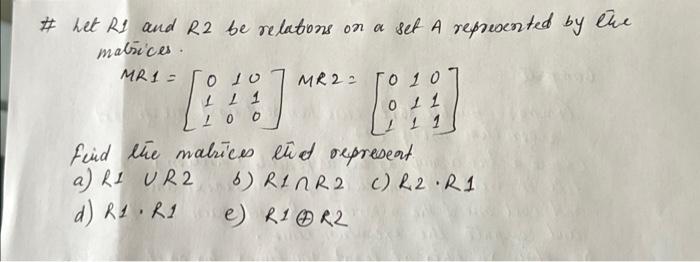 # Let R1 and R2 be relations on a set A represented by the
matrices.
MR1 = [0 1 0 MR2 = [0 1 0
1 1 1 0 1 1
1 0 0] 1 1 1]
find the matrices that represent
a) R1 ∪ R2 b) R1 ∩ R2 c) R2 · R1
d) R1 · R1 e) R1 ⊕ R2